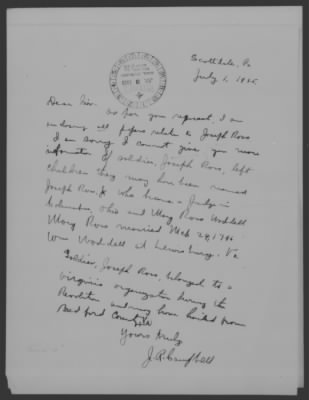 Scottdale, Pa
July 1, 19
Dear Sir. As for you request, I am
enclosing all papers relate to Joseph Ross
I am sorry I cannot give you more
information. If soldier, Joseph Ross, left
children they may have been named
Joseph Ross, Jr who became a Judge in
Columbus, Ohio and Mary Ross Waddell
Mary Ross married Mch 29, 1786
Wm Waddell at Lewisburg, Va
Soldier, Joseph Ross, belonged to a
Virginia organization during the
Revolution and may have hailed from
Bedford County
Yours truly
J. R. Campbell